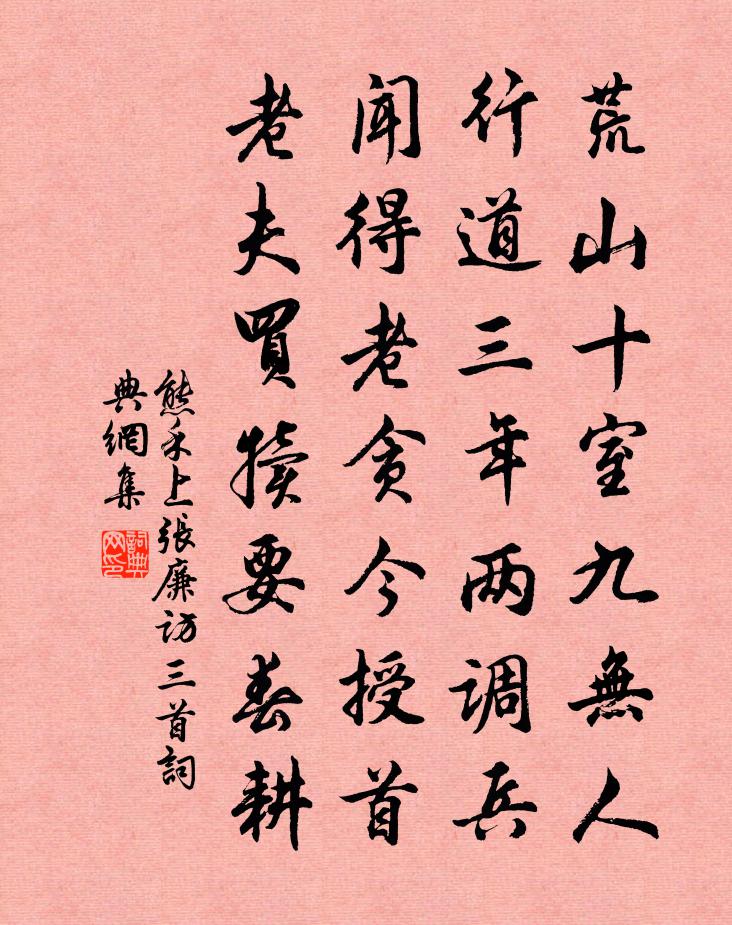 荒山十室九無人
行道三年两调兵
闻得老貪今授首
老夫買犢要春耕
熊禾上張廉访三首詞
典網集
詞典網印